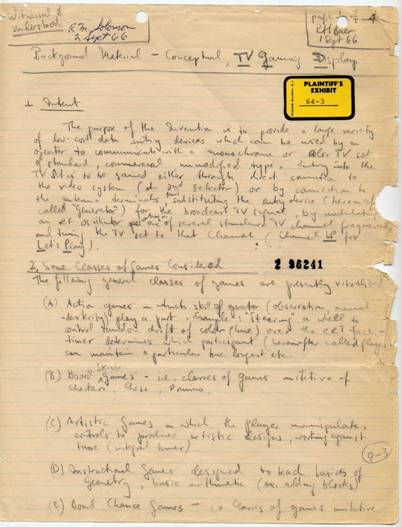 Witnessed &
understood
R.M. Solomon
2 Sept 66
page 1 of 4
RHBaer
1 Sept 66
Background Material - Conceptual, TV Gaming Display
PLAINTIFF'S
EXHIBIT
64-3
1. Intent
The purpose of the invention is to provide a large variety
of low cost data entry devices which can be used by an
operator to communicate with a monochrome or color TV set
of standard, commercial, unmodified type. Entry into the
TV set is to be gained either through direct connection to
the video system (at 2nd detector) or by connection to
the antenna terminals, substituting the entry device (
called generator) for the broadcast TV signal, by modulating
an rf oscillator on one of several standard TV channel frequencies
and tuning the TV set to that channel (Channel LP for
Let's Play).
2 96241
2. Some Classes of Games Considered
The following general classes of games are presently visualized
(A) Action games in which skill of operator (observation, manual
dexterity) play a part. Example: "Steering" a wheel to
control random drift of color (hue) over the CRT face -
timer determines which participant (hereinafter called player)
can maintain a particular hue longest etc.
(B) Board Skill Games - i.e. classes of games imitative of
checkers, chess, Dominos,
(C) Artistic Games in which the player manipulates
controls to produce artistic designs, working against
time (integral timer)
(D) Instructional Games designed to teach basics of
geometry, basic arithmetic (ex. adding blocks)
9-3
(E) Board Chance Games - i.e. classes of games imitative